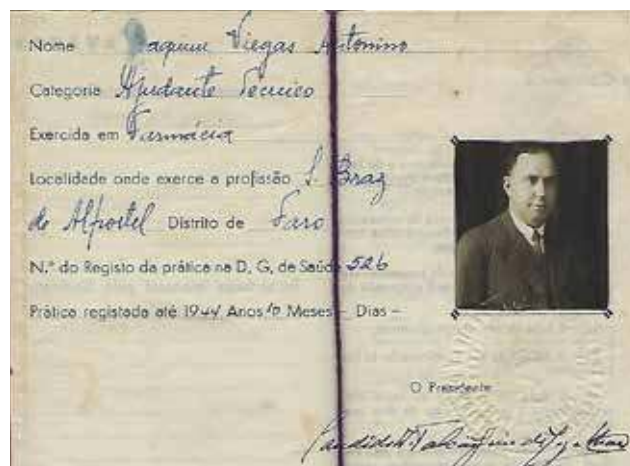 Nome Joaquim Viegas Antonino
Categoria Ajudante Tecnico
Exercida em Farmácia
Localidade onde exerce a profissão S. Braz
de Alportel Distrito de Faro
N.º do Registo da prática na D. G. de Saúde 526
Prática registada até 1944 Anos 10 Meses - Dias -
O Presidente